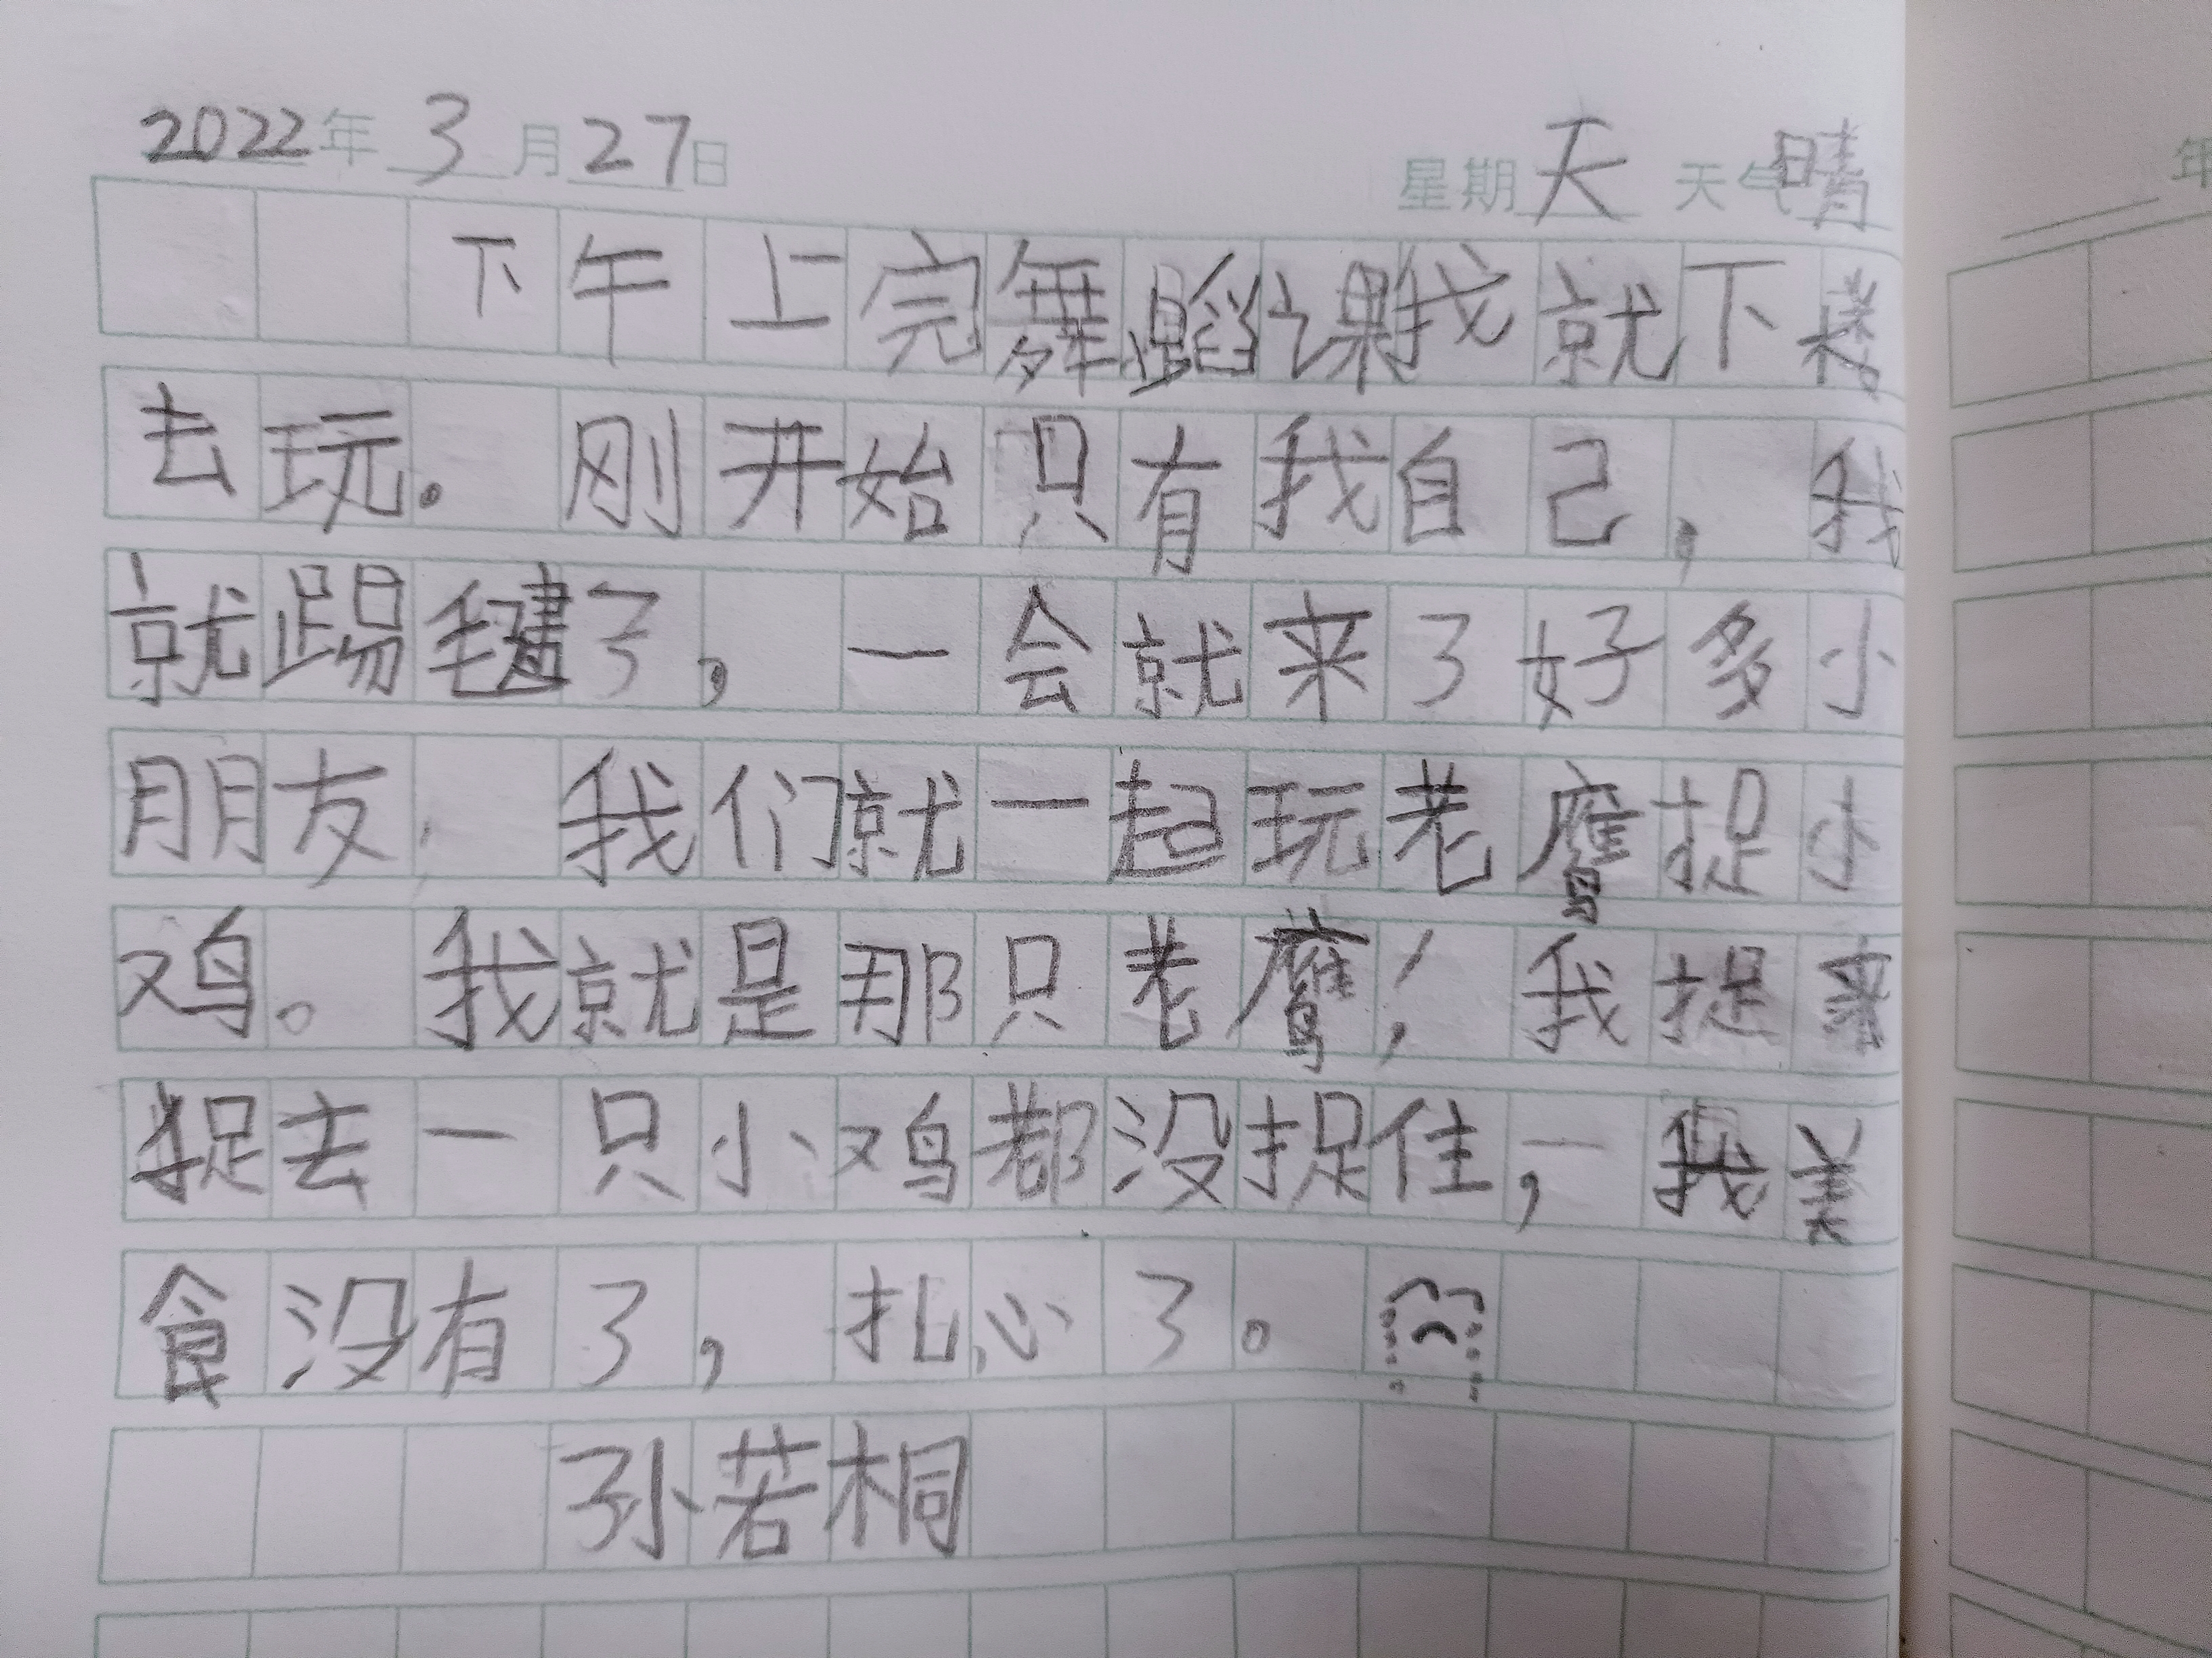 2022年 3月27日 星期天 天气晴
下午上完舞蹈课我就下楼
去玩。刚开始只有我自己，我
就踢毽了，一会就来了好多小
朋友，我们就一起玩老鹰捉小
鸡。我就是那只老鹰！我捉来
捉去一只小鸡都没捉住，我美
食没有了，扎心了。
孙若桐
年